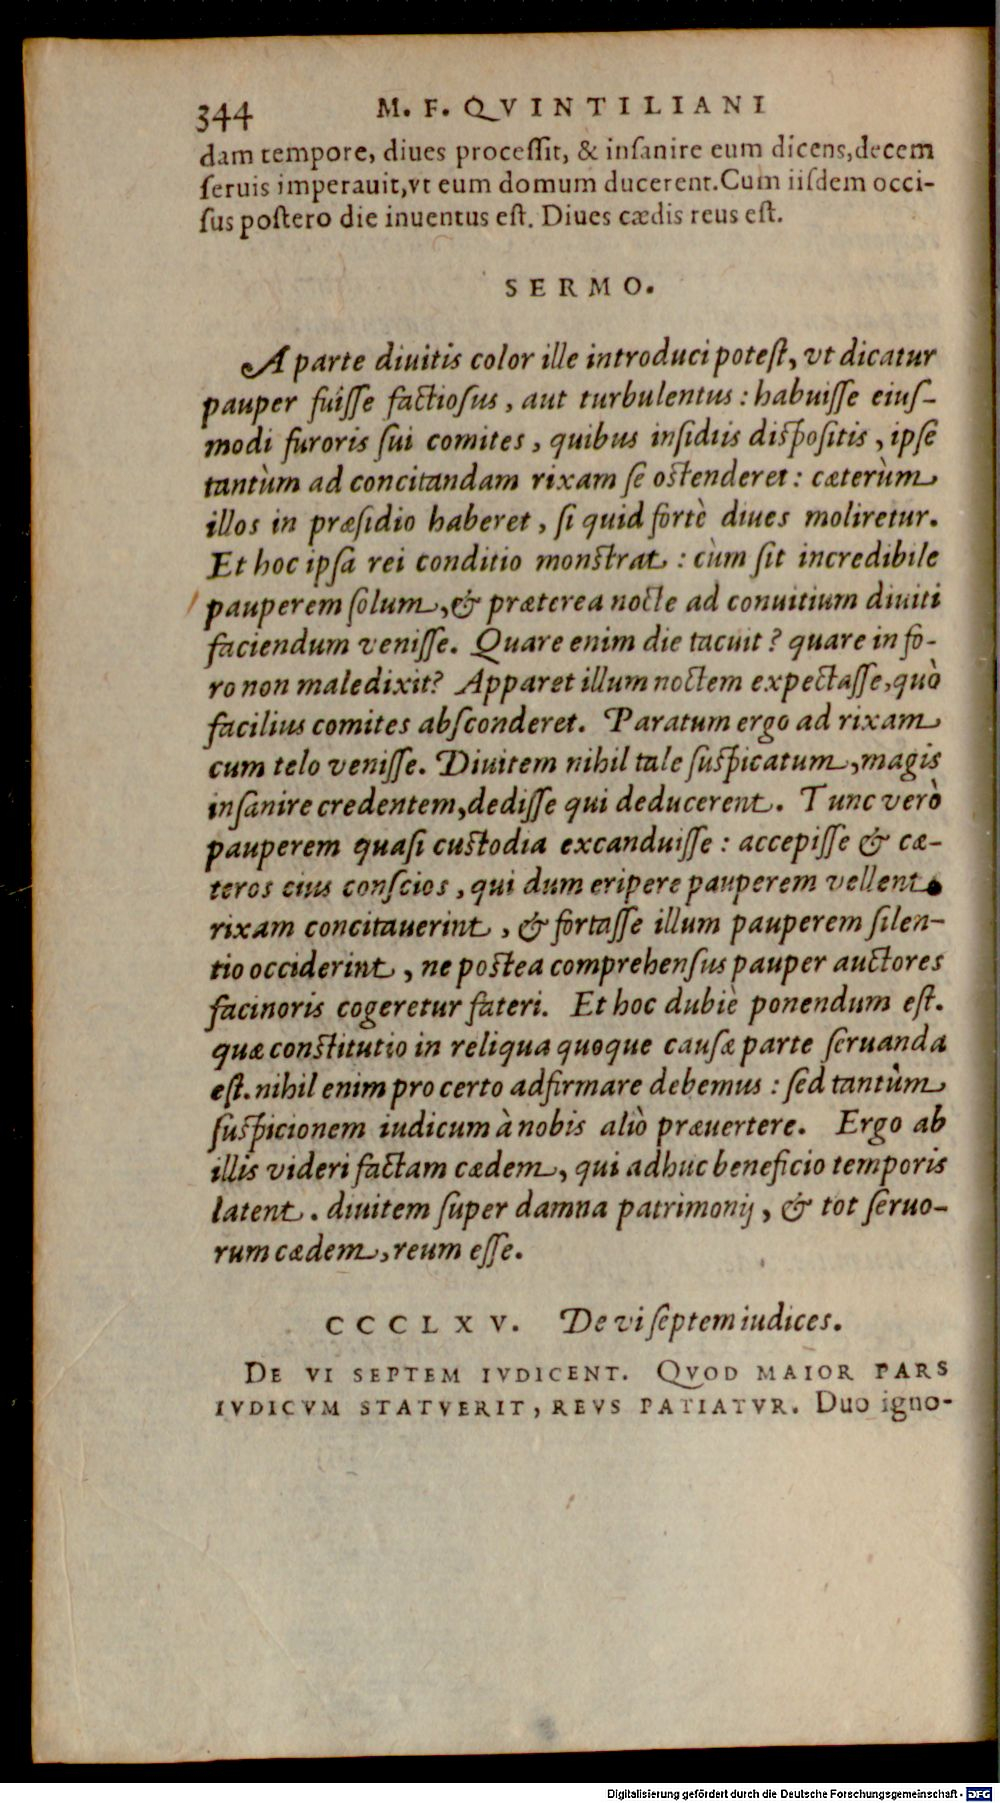 344 M. F. QVINTILIANI
dam tempore, diues processit, & insanire eum dicens, decem
seruis imperauit, vt eum domum ducerent. Cum iisdem occi-
sus postero die inuentus est. Diues cædis reus est.
SERMO.
A parte diuitis color ille introduci potest, vt dicatur
pauper fuisse factiosus, aut turbulentus: habuisse eius-
modi furoris sui comites, quibus insidiis dispositis, ipse
tantùm ad concitandam rixam se ostenderet: cæterùm
illos in præsidio haberet, si quid fortè diues moliretur.
Et hoc ipsa rei conditio monstrat: cùm sit incredibile
pauperem solum, & præterea nocte ad conuitium diuiti
faciendum venisse. Quare enim die tacuit? quare in fo-
ro non maledixit? Apparet illum noctem expectasse, quò
facilius comites absconderet. Paratum ergo ad rixam
cum telo venisse. Diuitem nihil tale suspicatum, magis
insanire credentem, dedisse qui deducerent. Tunc verò
pauperem quasi custodia excanduisse: accepisse & cæ-
teros eius conscios, qui dum eripere pauperem vellent
rixam concitauerint, & fortasse illum pauperem silen-
tio occiderint, ne postea comprehensus pauper auctores
facinoris cogeretur fateri. Et hoc dubiè ponendum est.
quæ constitutio in reliqua quoque causæ parte seruanda
est. nihil enim pro certo adfirmare debemus: sed tantùm
suspicionem iudicum à nobis aliò præuertere. Ergo ab
illis videri factam cædem, qui adhuc beneficio temporis
latent. diuitem super damna patrimonij, & tot seruo-
rum cædem, reum esse.
CCCLXV. De vi septem iudices.
DE VI SEPTEM IVDICENT. QVOD MAIOR PARS
IVDICVM STATVERIT, REVS PATIATVR. Duo igno-
Digitalisierung gefördert durch die Deutsche Forschungsgemeinschaft - DFG